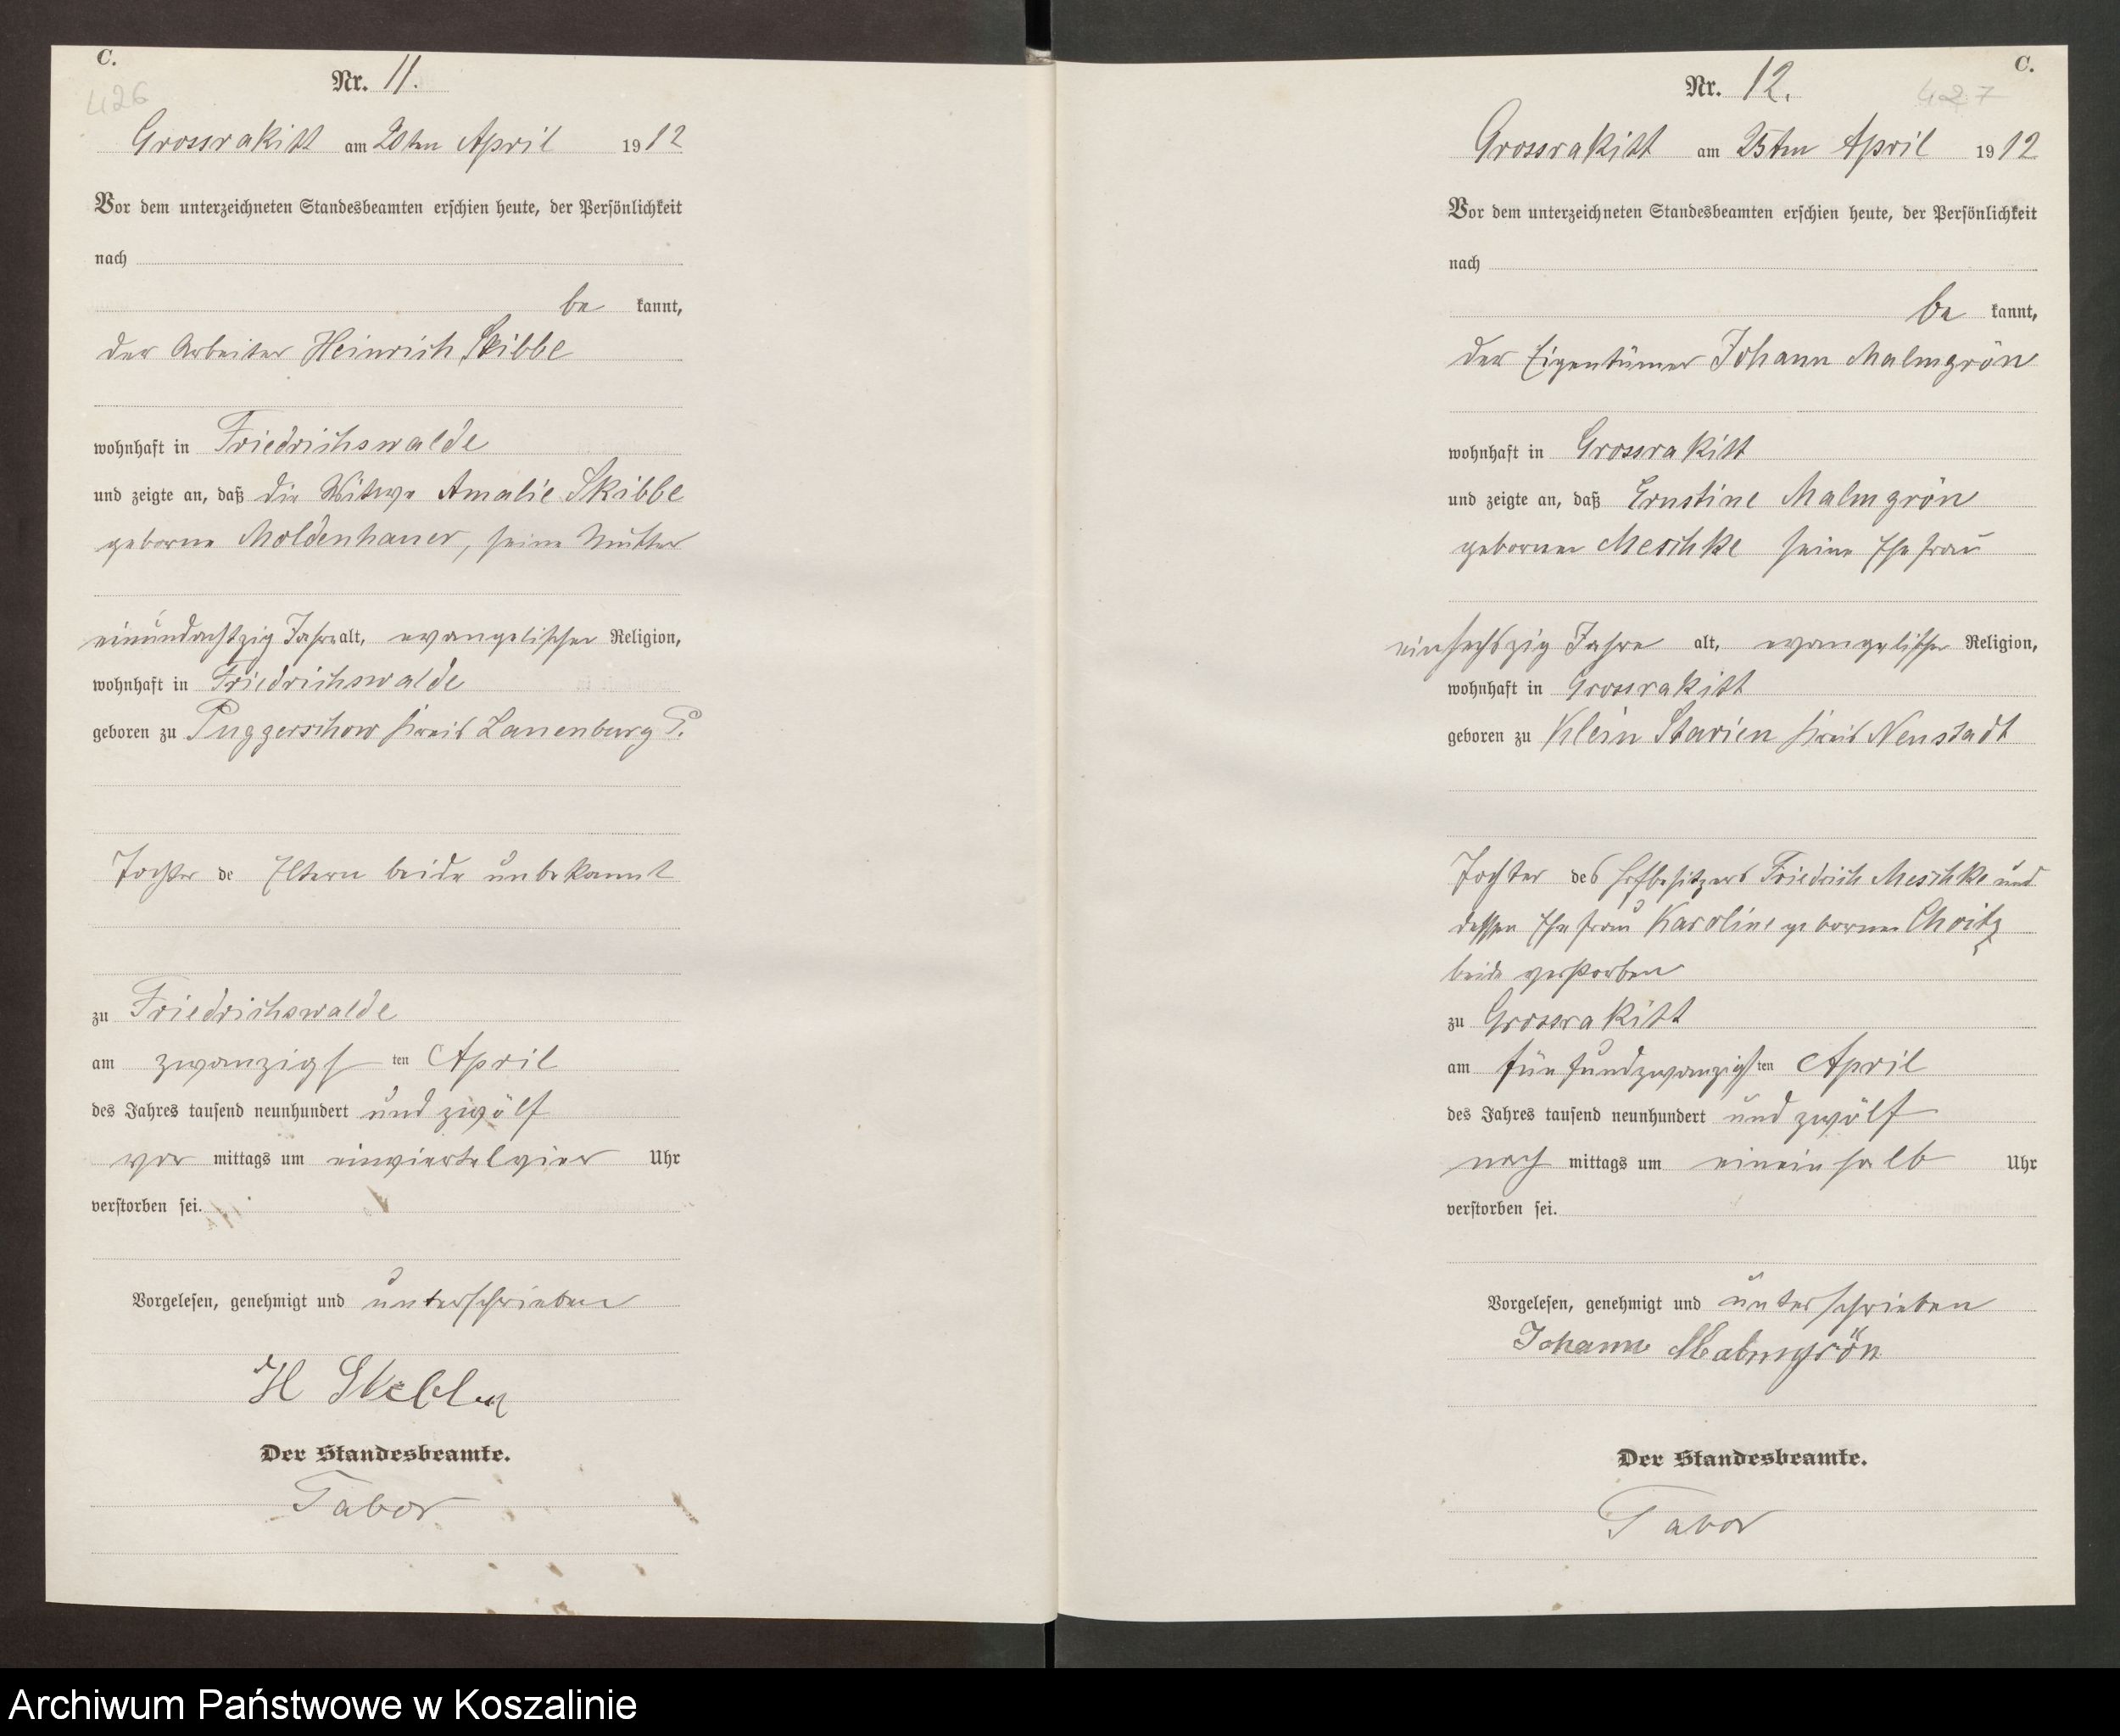 C.
426
Nr. 11.
Grossrakitt am 20ten April 1912
Vor dem unterzeichneten Standesbeamten erschien heute, der Persönlichkeit
nach
be kannt,
der Arbeiter Heinrich Skibbe
wohnhaft in Friedrichswalde
und zeigte an, daß die Witwe Amalie Skibbe
geborne Moldenhauer, seine Mutter
einundachtzig Jahre alt, evangelischer Religion,
wohnhaft in Friedrichswalde
geboren zu Puggerschow Kreis Lauenburg P.
Tochter de Eltern beide unbekannt
zu Friedrichswalde
am zwanzigsten April
des Jahres tausend neunhundert und zwölf
vor mittags um einviertelvier Uhr
verstorben sei.
Vorgelesen, genehmigt und unterschrieben
H Skibbe
Der Standesbeamte.
Tabor
C.
427
Nr. 12.
Grossrakitt am 25ten April 1912
Vor dem unterzeichneten Standesbeamten erschien heute, der Persönlichkeit
nach
be kannt,
der Eigentümer Johann Malmgrön
wohnhaft in Grossrakitt
und zeigte an, daß Ernstine Malmgrön
geborner Meschke seine Ehefrau
einsechszig Jahre alt, evangelischer Religion,
wohnhaft in Grossrakitt
geboren zu Klein Starien Kreis Neustadt
Tochter des Hofbesitzers Friedrich Meschke und
dessen Ehefrau Karoline geborner Choitz
beide verstorben
zu Grossrakitt
am fünfundzwanzigsten April
des Jahres tausend neunhundert und zwölf
nach mittags um eineinhalb Uhr
verstorben sei.
Vorgelesen, genehmigt und unterschrieben
Johann Malmgrön
Der Standesbeamte.
Tabor
Archiwum Państwowe w Koszalinie